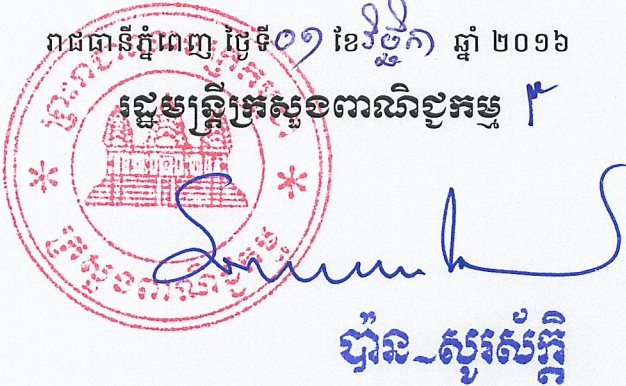 រាជធានីភ្នំពេញ ថ្ងៃទី០១ ខែវិច្ឆិកា ឆ្នាំ ២០១៦
រដ្ឋមន្ត្រីក្រសួងពាណិជ្ជកម្ម
ក្រសួងពាណិជ្ជកម្ម
ប៉ាន សូរស័ក្តិ